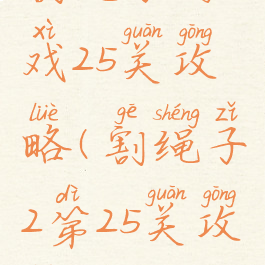 xì guān gōng
戏25关攻
lüè gē shéng zǐ
略(割绳子
dì guān gōng
2第25关攻